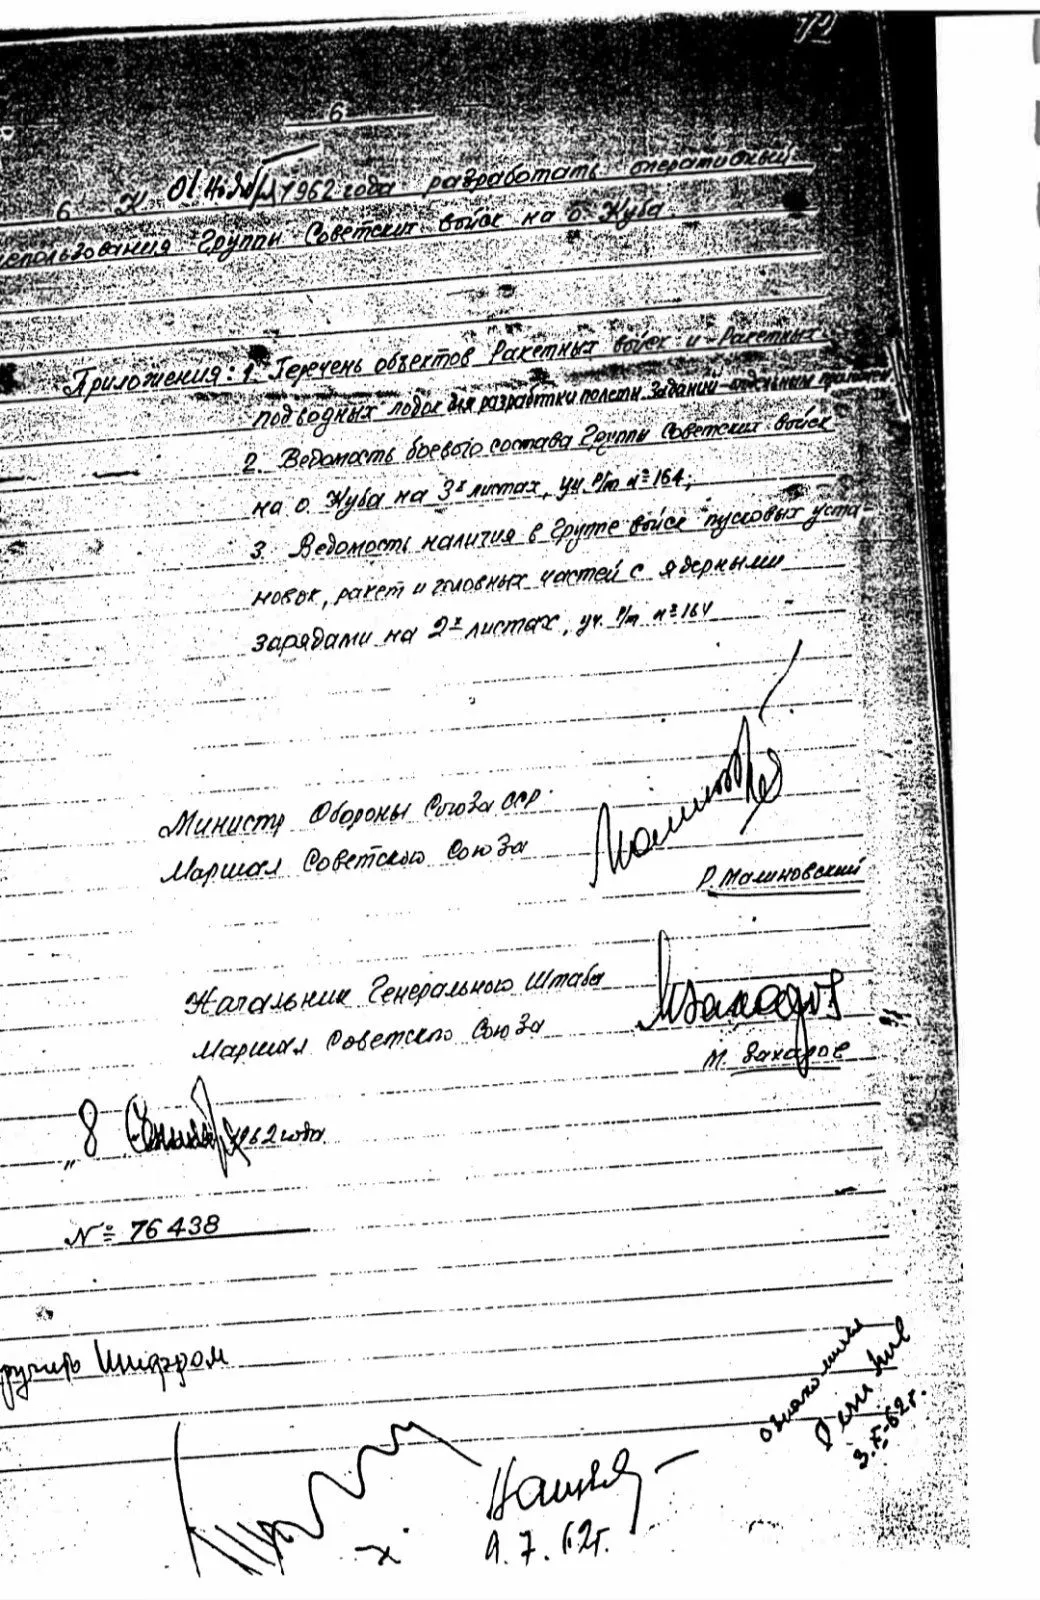 6
6. К 01 Ноября 1962 года разработать оперативный
использования Группы Советских войск на о. Куба
Приложения: 1. Перечень объектов Ракетных войск и Ракетных
подводных лодок для разработки полетн. заданий - отдельным
2. Ведомость боевого состава Группы Советских войск
на о. Куба на 3х листах, уч. р/т № 164;
3. Ведомость наличия в Группе войск пусковых уста-
новок, ракет и головных частей с ядерными
зарядами на 2х листах, уч. р/т № 164
Министр Обороны Союза ССР
Маршал Советского Союза
Малиновский
Р. Малиновский
Начальник Генерального Штаба
Маршал Советского Союза
МЗахаров
М. Захаров
"8 Сентября 1962 года
№ 76438
шифром
ознакомился
3.X-62г.